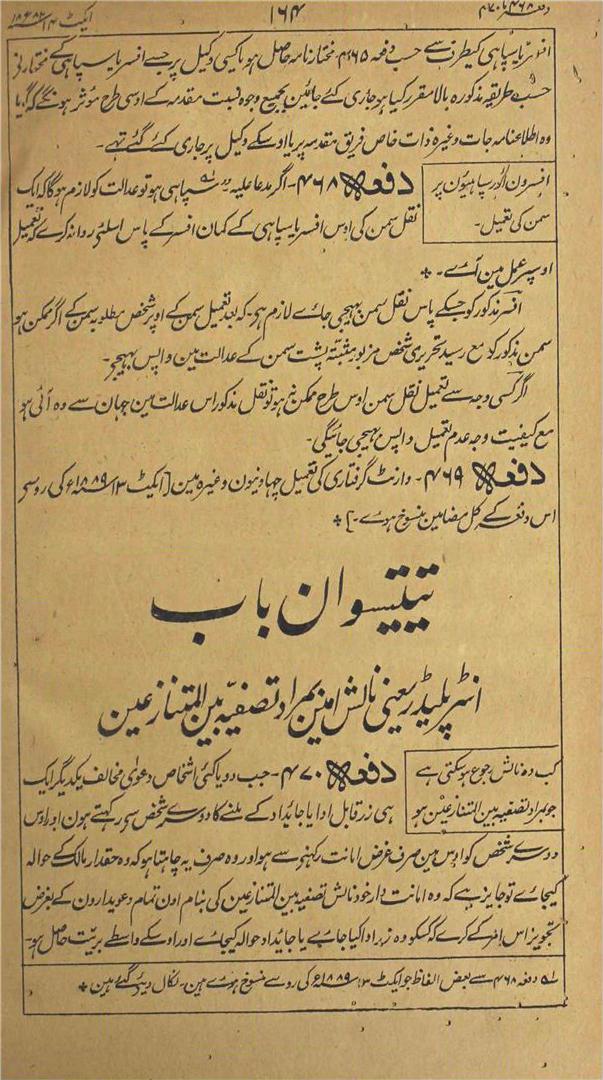 دفعہ ۴۶۸ تا ۴۷۰ ۱۶۴ ایکٹ ۱۴ سنہ ۱۸۸۲ع
افسر یا سپاہی کیطرف سے حسب دفعہ ۴۶۵ مختارنامہ حاصل ہو یا کسی وکیل پر جسے افسر یا سپاہی کے مختار نے
حسب طریقہ مذکورہ بالا مقرر کیا ہو جاری کئے جائین بجمیع وجوہ نسبت مقدمہ کے اوسی طرح مؤثر ہونگے کہ گویا
وہ اطلاعنامہ جات وغیرہ ذات خاص فریق مقدمہ پر یا اوسکے وکیل پر جاری کئے گئے تہے۔
افسرون اور سپاہیون پر
سمن کی تعمیل۔
دفعہ ۴۶۸۔ اگر مدعا علیہ سپاہی ہو تو عدالت کو لازم ہوگا کہ ایک
نقل سمن کی اوس افسر یا سپاہی کے کمان افسر کے پاس اسلئے روانہ کرے کہ تعمیل
اوسپر عمل مین آے۔ *
افسر مذکور کو جسکے پاس نقل سمن بہیجی جاے لازم ہے۔ کہ بعد تعمیل سمن کے اوپر شخص مطلوبہ سمن کے اگر ممکن ہو
سمن مذکور کو مع رسید تحریری شخص مزبور مثبتہ پشت سمن کے عدالت مین واپس بہیجے۔
اگر کسی وجہ سے تعمیل نقل سمن اوس طرح ممکن نہو تو نقل مذکور اس عدالت مین جہان سے وہ آئی ہو
مع کیفیت وجہ عدم تعمیل واپس بہیجی جائیگی۔
دفعہ ۴۶۹۔ وارنٹ گرفتاری کی تعمیل چہاونیون وغیرہ مین [ایکٹ ۱۳ سنہ ۱۸۸۹ع کی روسے
اس دفعہ کے کل مضامین منسوخ ہوے۔] *
تیتیسوان باب
انٹرپلیڈر یعنی نالش امین بمراد تصفیہ بین المتنازعین
کب وہ نالش رجوع ہوسکتی ہے
جو بمراد تصفیہ بین المتنازعین ہو
دفعہ ۴۷۰۔ جب دو یا کئی اشخاص دعوی مخالف یکدیگر ایک
ہی زر قابل ادا یا جائداد کے ملنے کا دوسرے شخص سے رکہتے ہون اور اوس
دوسرے شخص کو اوس مین صرف غرض امانت رکہنے سے ہو اور وہ صرف یہ چاہتا ہو کہ وہ حقدار مالک کے حوالہ
کیجاے تو جایز ہے کہ وہ امانت دار خود نالش تصفیہ بین المتنازعین کی بنام اون تمام دعویدارون کے بغرض
تجویز اس امر کے کرے کہ کسکو وہ زر ادا کیا جاے یا جائداد حوالہ کیجاے اور اوسکے واسطے بریت حاصل ہو۔
دفعہ ۴۶۸ سے بعض الفاظ جو ایکٹ ۱۳ سنہ ۱۸۸۹ع کی رو سے منسوخ ہوے ہین۔ نکال دیئے گئے ہین *